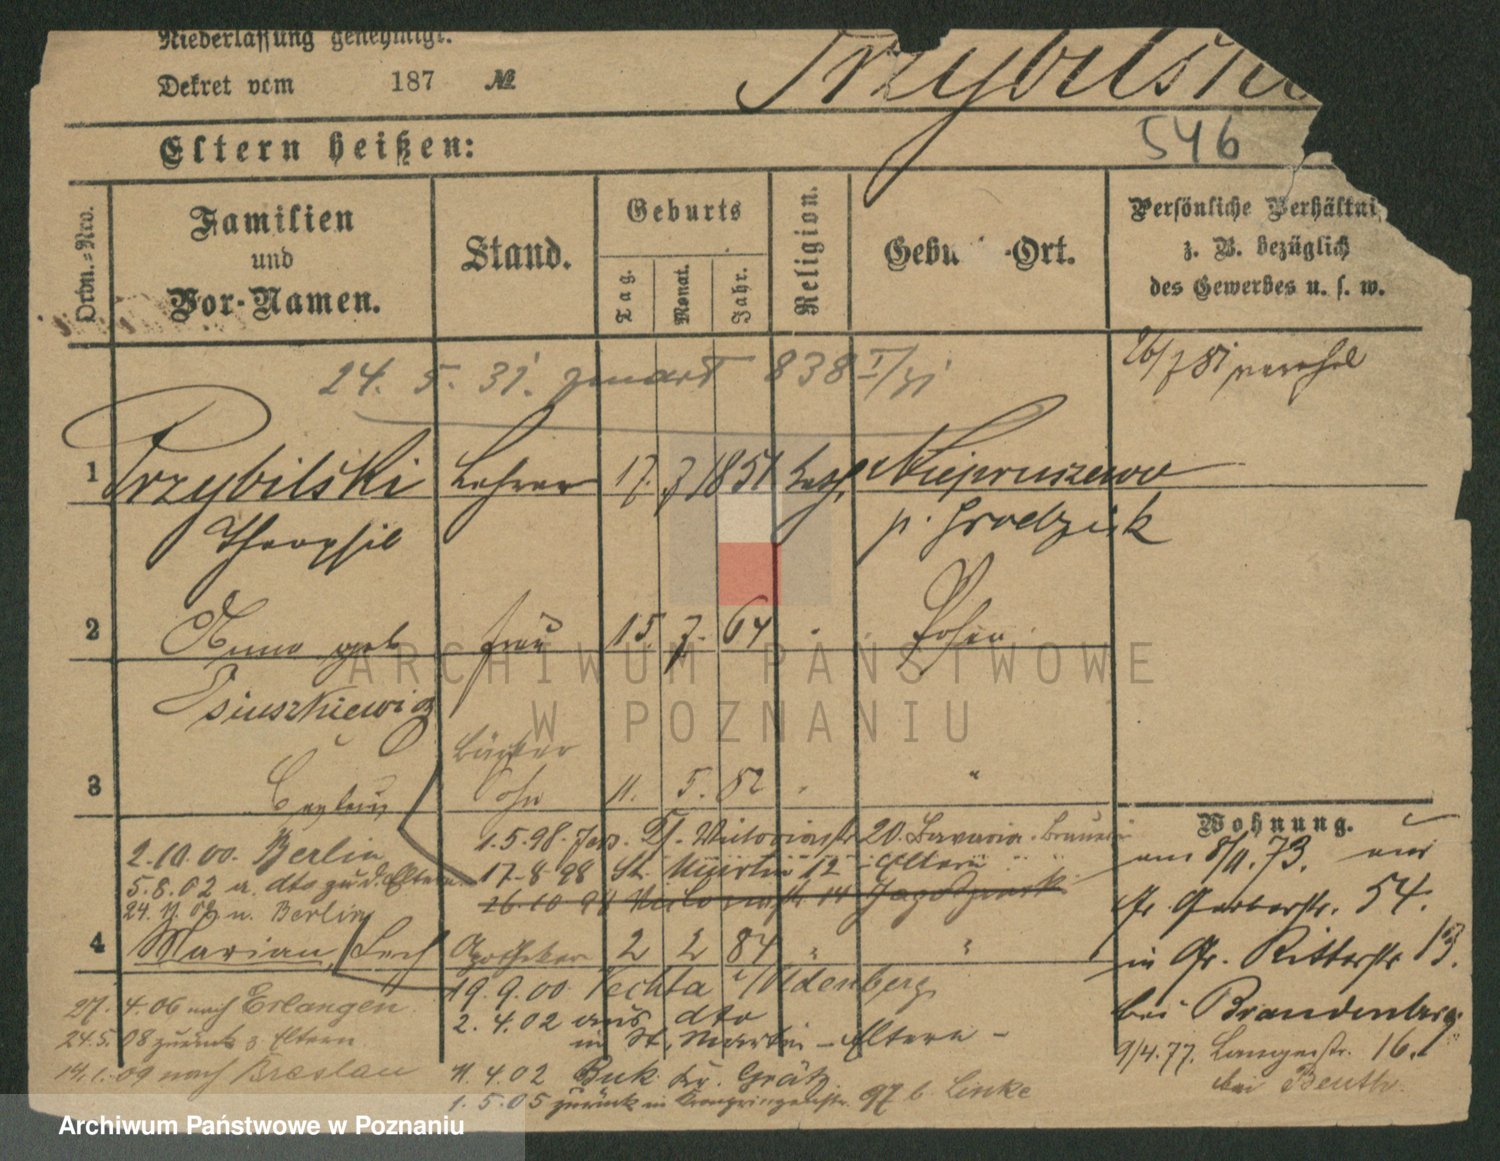 Niederlassung genehmigt.
Dekret vom 187 №
Przybilski
546
Eltern heißen:
Ordn.-Nro.
Familien
und
Vor-Namen.
Stand.
Geburts
Tag.
Monat.
Jahr.
Religion.
Gebu -Ort.
Persönliche Verhältni
z. B. bezüglich
des Gewerbes u. s. w.
24. 5. 31. 838
1 Przybilski Lehrer 17. 7 1851 kath. Niepruszewo
Theophil p. Grodzisk
2 Anna geb Frau 15. 7. 64 Posen
Osiuszkiewicz
3 Sohn 11. 5. 82 "
Wohnung.
1.5.98. Jers. Tf. Victoriastr 20. Bavaria-Brauerei
2.10.00. Berlin
17-8-98 St. Martin 12 - Eltern
am 8/11.73. aus
5.8.02 a. dto zu d. Eltern
24.11.02 n. Berlin
Gr. Gerberstr. 54.
4 Marian Lech Apotheker 2 2 84 " "
in Gr. Ritterstr 13.
19.9.00 Vechta i/Oldenberg
bei Brandenburg
27.4.06 nach Erlangen
2.4.02 aus dto
in St. Martin - Eltern -
24.5.08 zurück z Eltern
9/4.77. Langestr. 16.
bei Beuth
14.1.09 nach Breslau
11.4.02 Buk Kr. Grätz
1.5.05 zurück in Kronprinzenstr. 97 b Linke
ARCHIWUM PAŃSTWOWE
W POZNANIU
Archiwum Państwowe w Poznaniu